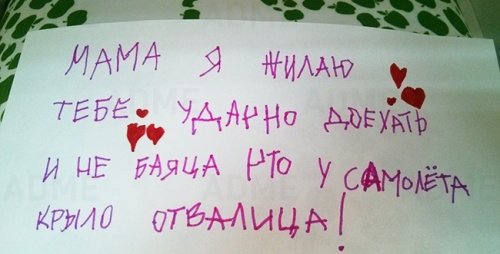 МАМА Я ЖИЛАЮ
ТЕБЕ УДАЧНО ДОЕХАТЬ
И НЕ БАЯЦА ЧТО У САМОЛЁТА
КРЫЛО ОТВАЛИЦА!
ADME